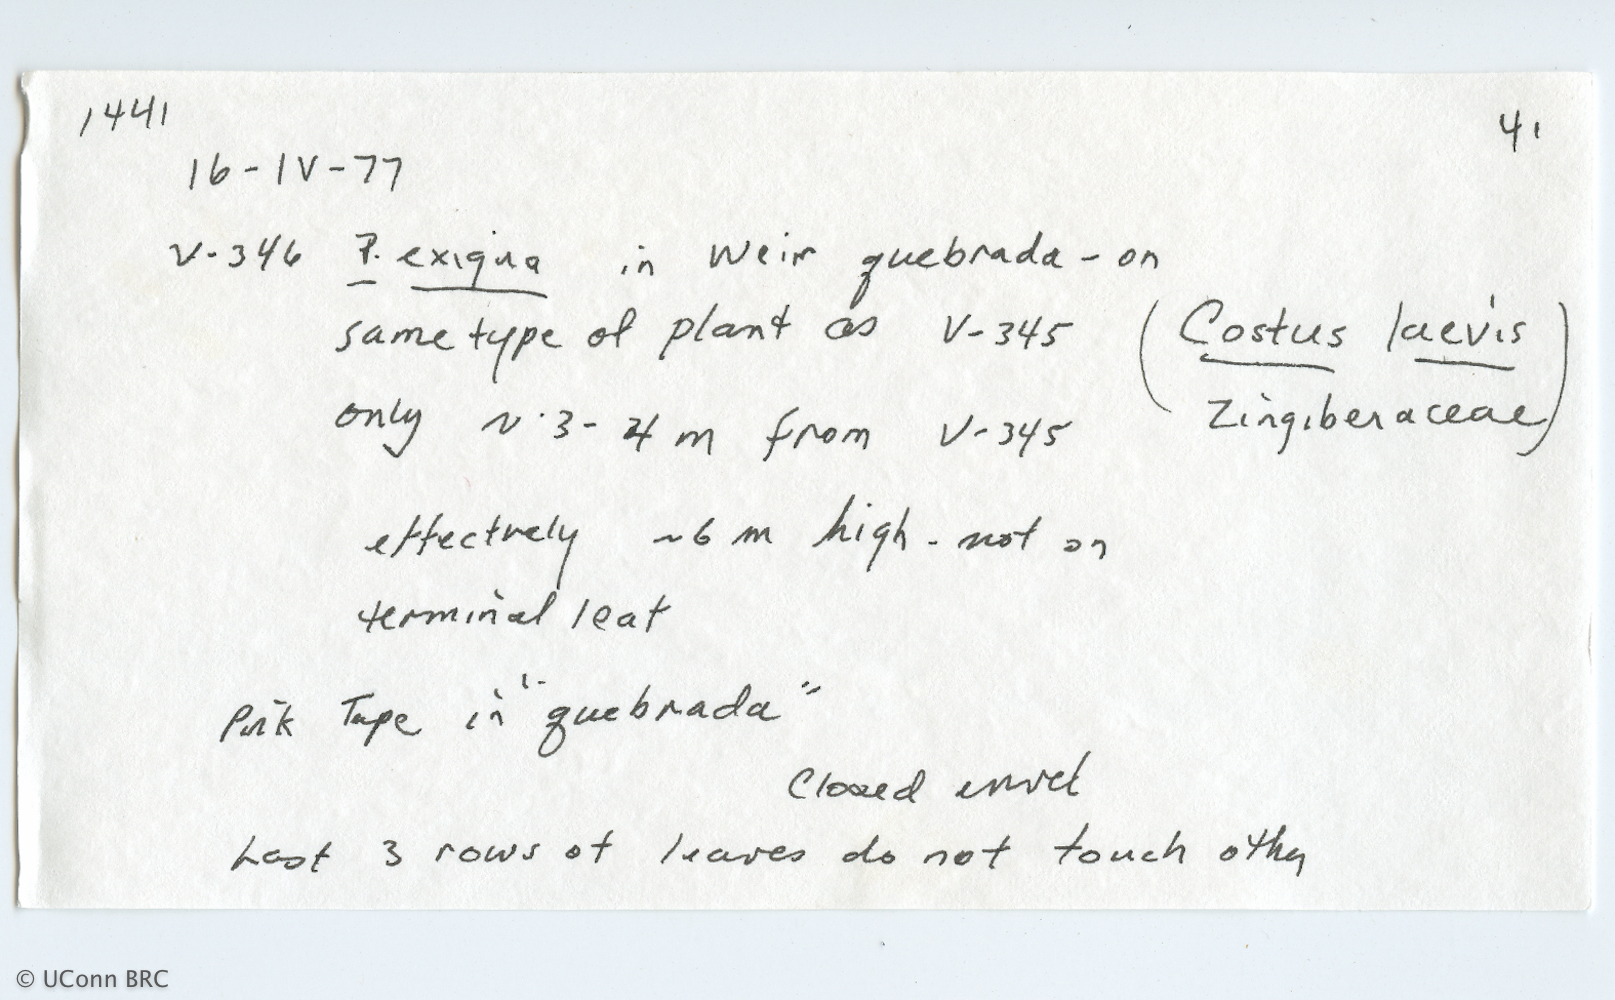 1441 41
16-IV-77
V-346 P. exigua in Weir quebrada - on
same type of plant as V-345 (Costus laevis
only ~ 3-4 m from V-345 Zingiberaceae)
effectively ~6 m high - not on
terminal leaf
Pink Tape in "quebrada"
Closed
Last 3 rows of leaves do not touch other
© UConn BRC